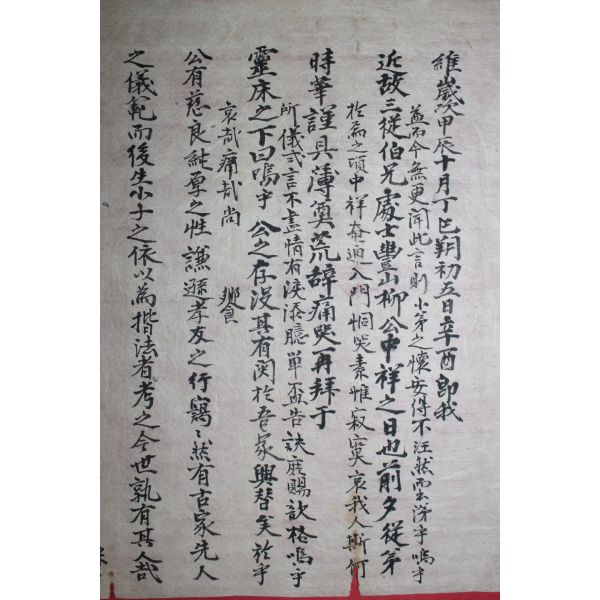 維歲次甲辰十月丁巳朔初五日辛酉卽我
益而今無更聞此言則小弟之懷安得不汪然而出涕乎嗚乎
近故三從伯兄處士豊山柳公中祥之日也前夕從弟
於焉之頃中祥奄迫入門恫哭素帷寂寞哀我人斯何
時華謹具薄奠荒辞痛哭再拜于
所儀弍言不盡情有淚添臆單盃告訣庶賜歆格嗚乎
靈床之下曰嗚乎 公之存沒其有関於吾家興替矣於乎
哀哉痛哉尚 饗
公有慈良純厚之性謙遜孝友之行窩〻然有古家先人
之儀範而後生小子之依以為揩法者考之今世孰有其人哉